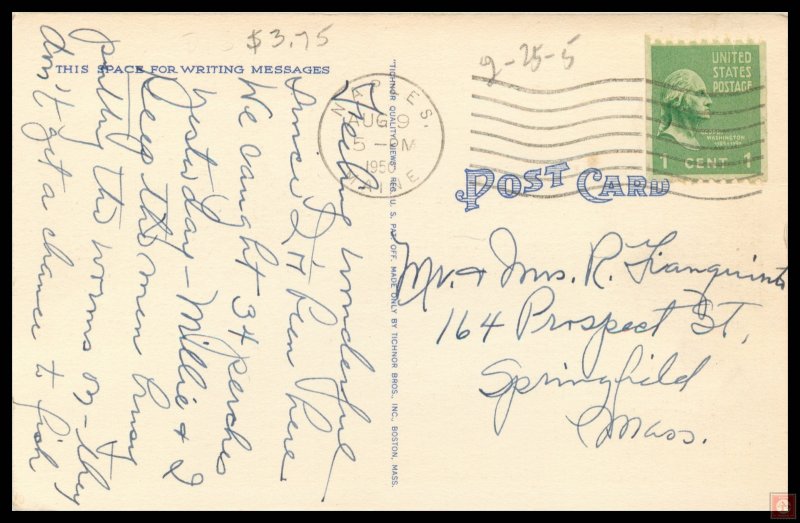 $3.75
THIS SPACE FOR WRITING MESSAGES
Feeling wonderful
since I'v been here.
We caught 34 perches
yesterday - Millie & I
keep the men busy
putting the worms on - they
don't get a chance to fish
"TICHNOR QUALITY VIEWS," REG. U. S. PAT. OFF. MADE ONLY BY TICHNOR BROS., INC., BOSTON, MASS.
NAPLES,
AUG 9
5 - PM
1950
MAINE
2-25-5
UNITED
STATES
POSTAGE
GEORGE
WASHINGTON
1789-1797
1 CENT 1
POST CARD
Mr. & Mrs. R.
164 Prospect St,
Springfield
Mass.